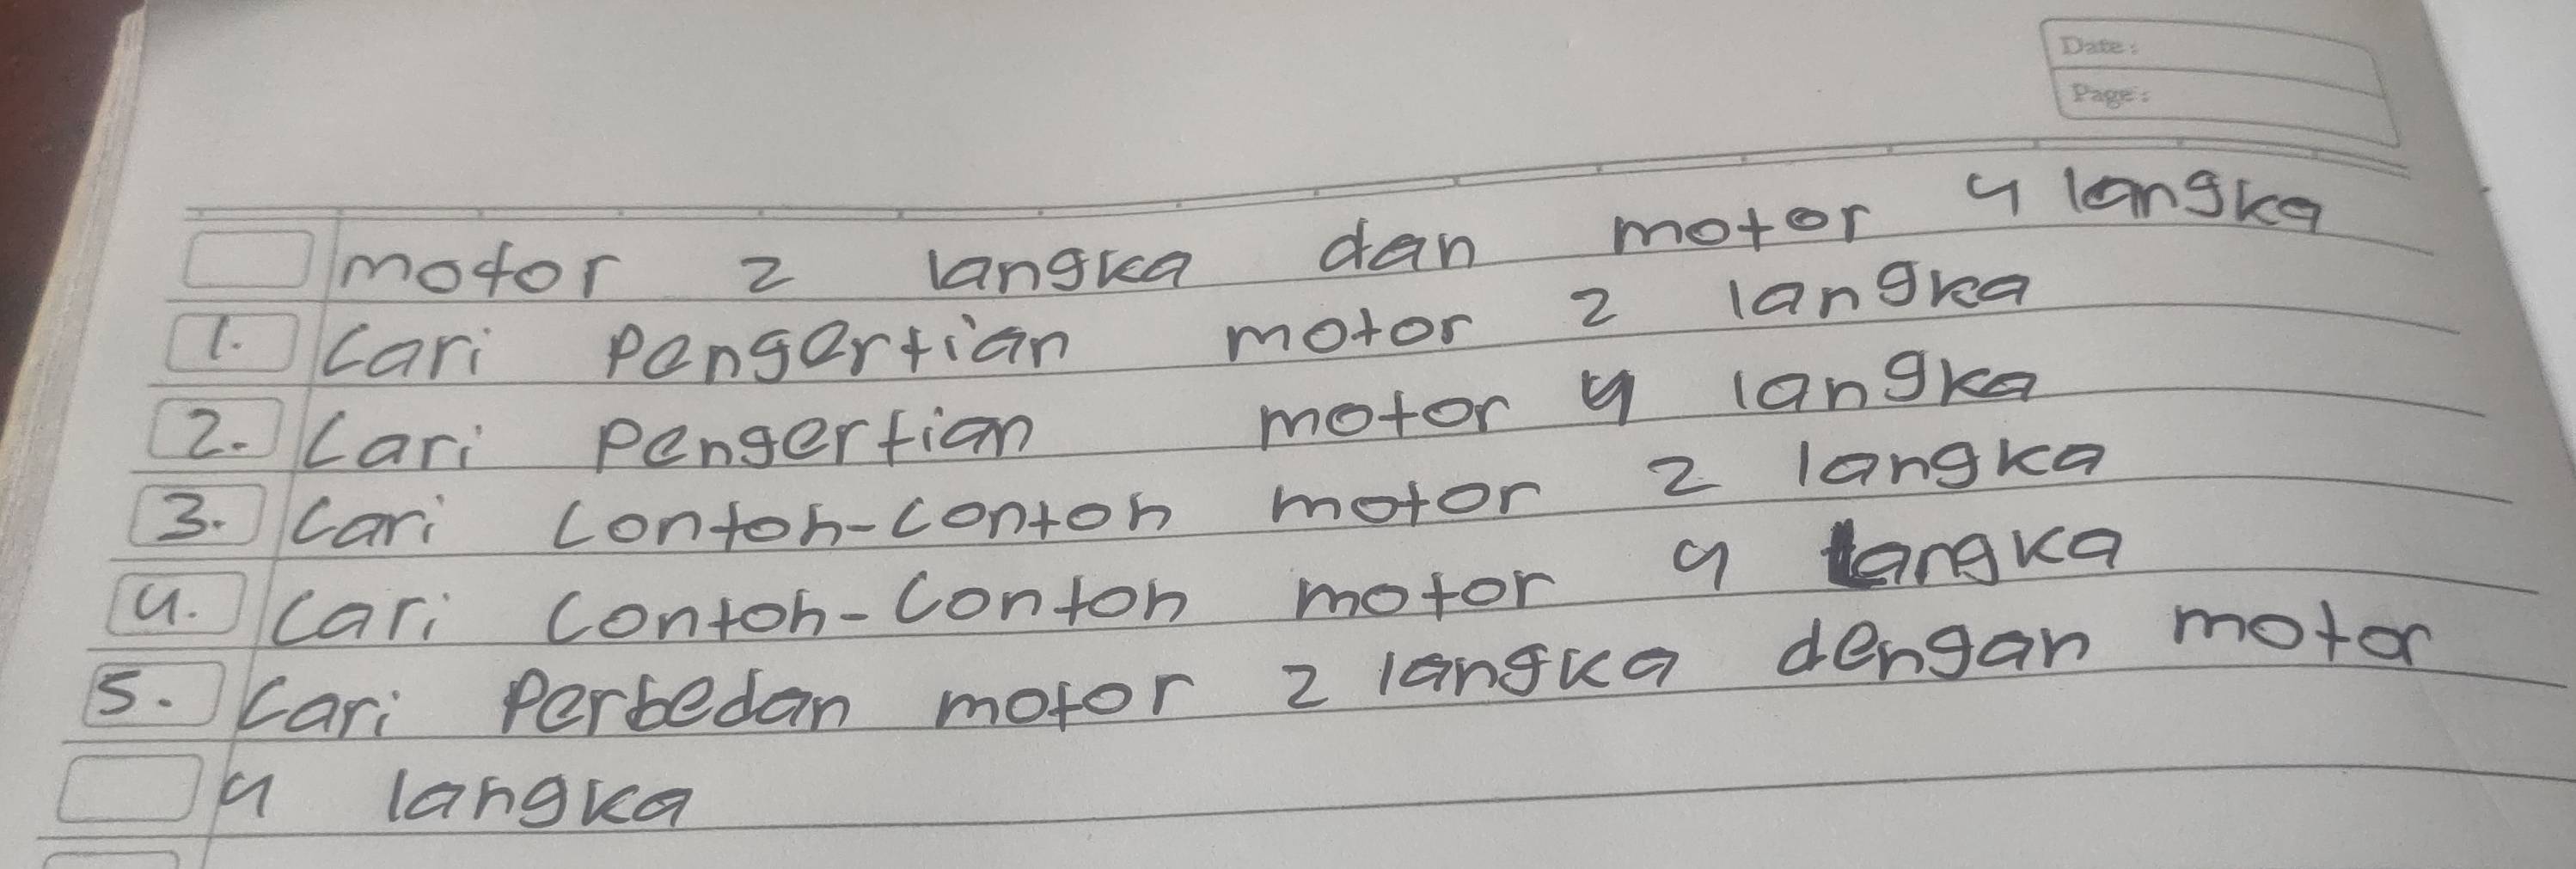 Date:
Page:
motor 2 langka dan motor 4 langka
1. Cari Pengertian motor 2 langka
2. Cari Pengertian motor 4 langka
3. Cari Contoh-Contoh motor 2 langka
4. Cari Contoh-Contoh motor 4 langka
5. Cari Perbedan motor 2 langka dengan motor
4 langka